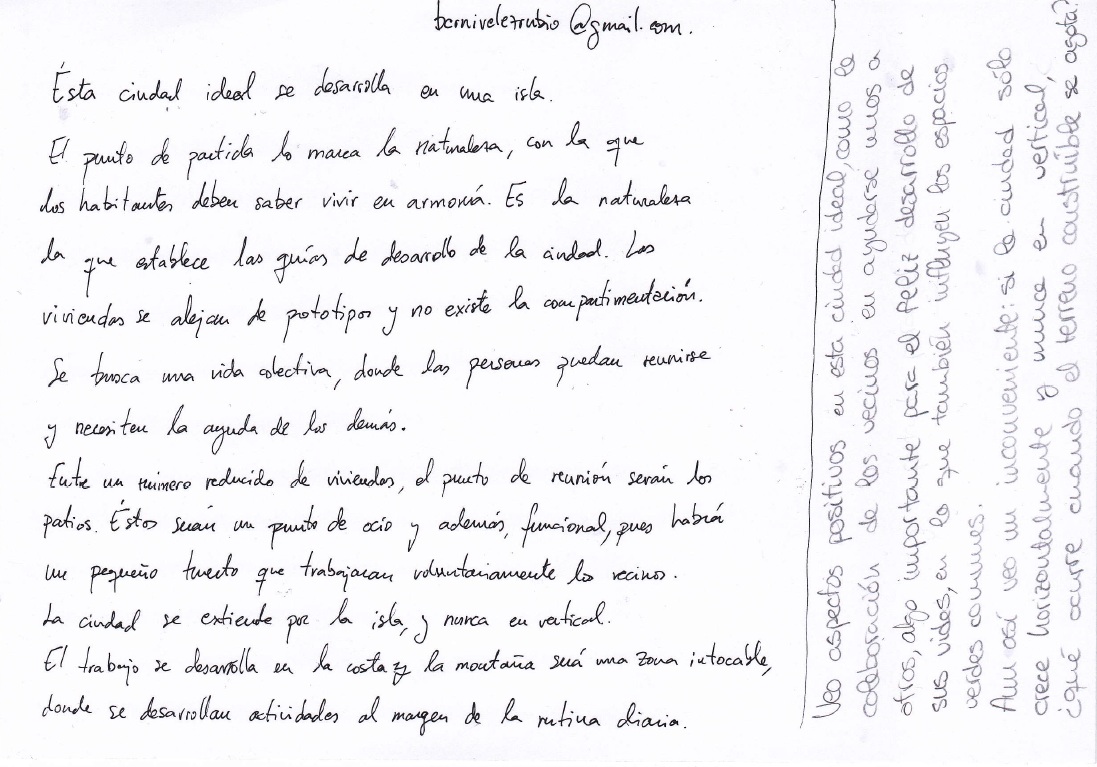 bcnivelezrubio@gmail.com.
Ésta ciudad ideal se desarrolla en una isla.
El punto de partida lo marca la naturalesa, con la que
los habitantes deben saber vivir en armonía. Es la naturalesa
la que establece las guías de desarrollo de la ciudad. Las
viviendas se alejan de prototipos y no existe la compartimentación.
Se busca una vida colectiva, donde las personas puedan reunirse
y necesiten la ayuda de los demás.
Entre un número reducido de viviendas, el punto de reunión serán los
patios. Éstos serán un punto de ocio y además, funcional, pues habrá
un pequeño huerto que trabajaran voluntariamente los vecinos.
La ciudad se extiende por la isla, y nunca en vertical.
El trabajo se desarrolla en la costa y la montaña será una zona intocable,
donde se desarrollan actividades al margen de la rutina diaria.
Veo aspectos positivos en esta ciudad ideal, como la
colaboración de los vecinos en ayudarse unos a
otros, algo importante para el feliz desarrollo de
sus vidas, en lo que también influyen los espacios
verdes comunes.
Aun así veo un inconveniente: si la ciudad sólo
crece horizontalmente y nunca en vertical,
¿qué ocurre cuando el terreno construible se agota?